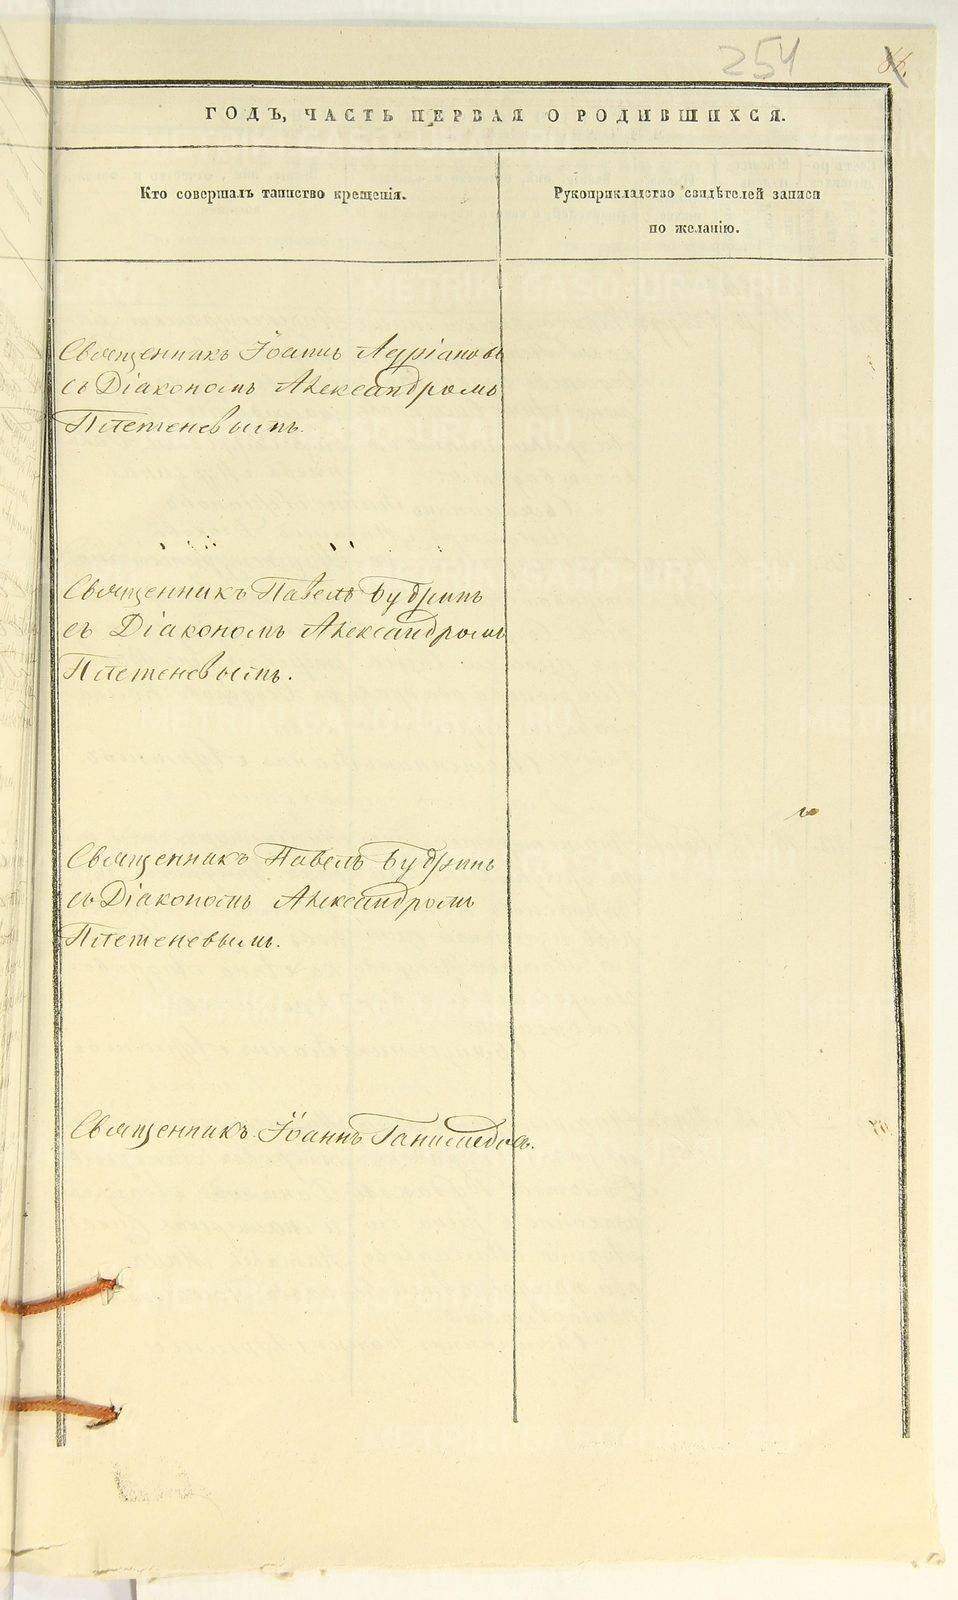 254
ГОДЪ, ЧАСТЬ ПЕРВАЯ О РОДИВШИХСЯ.
Кто совершалъ таинство крещенія.
Рукоприкладство свидѣтелей записи
по желанію.
Священникъ Іоаннъ Адріановъ
съ Діакономъ Александромъ
Плетеневымъ.
Священникъ Павелъ Будринъ
съ Діакономъ Александромъ
Плетеневымъ.
Священникъ Павелъ Будринъ
съ Діакономъ Александромъ
Плетеневымъ.
Священникъ Іоаннъ Ганимедовъ.
METRIKI.GASO-URAL.RU